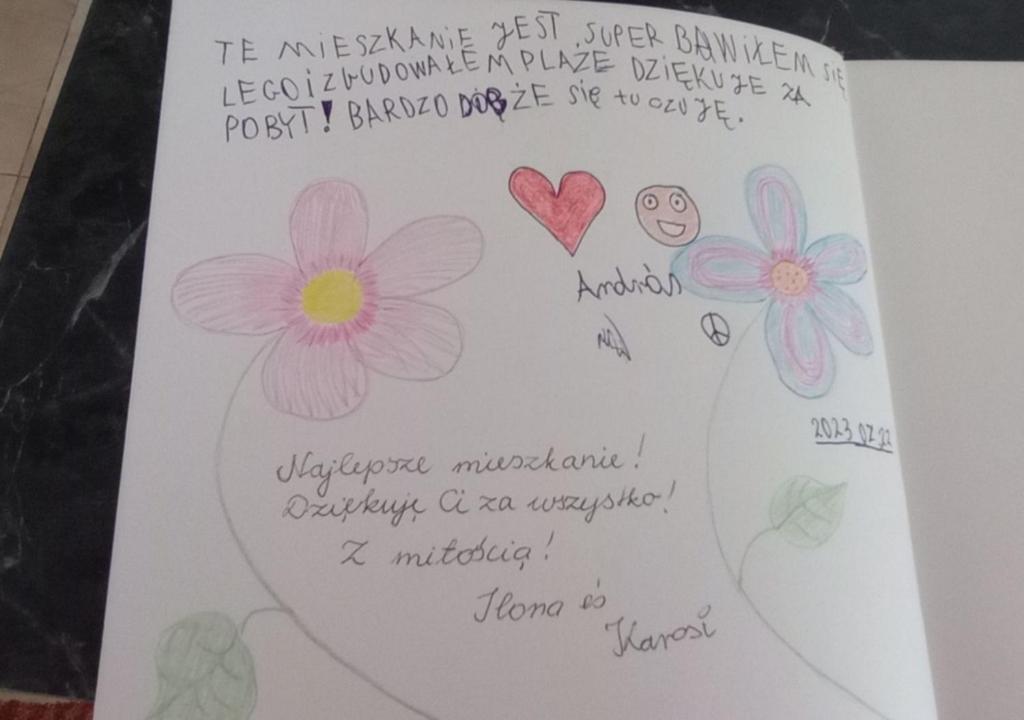 TE MIESZKANIE JEST SUPER BAWIŁEM SIĘ
LEGO I ZBUDOWAŁEM PLAŻE DZIĘKUJE ZA
POBYT! BARDZO DOBŻE SIĘ tu CZUJĘ.
András
2023 07 22
Najlepsze mieszkanie!
Dziękuję Ci za wszystko!
Z miłością!
Ilona és
Karosi